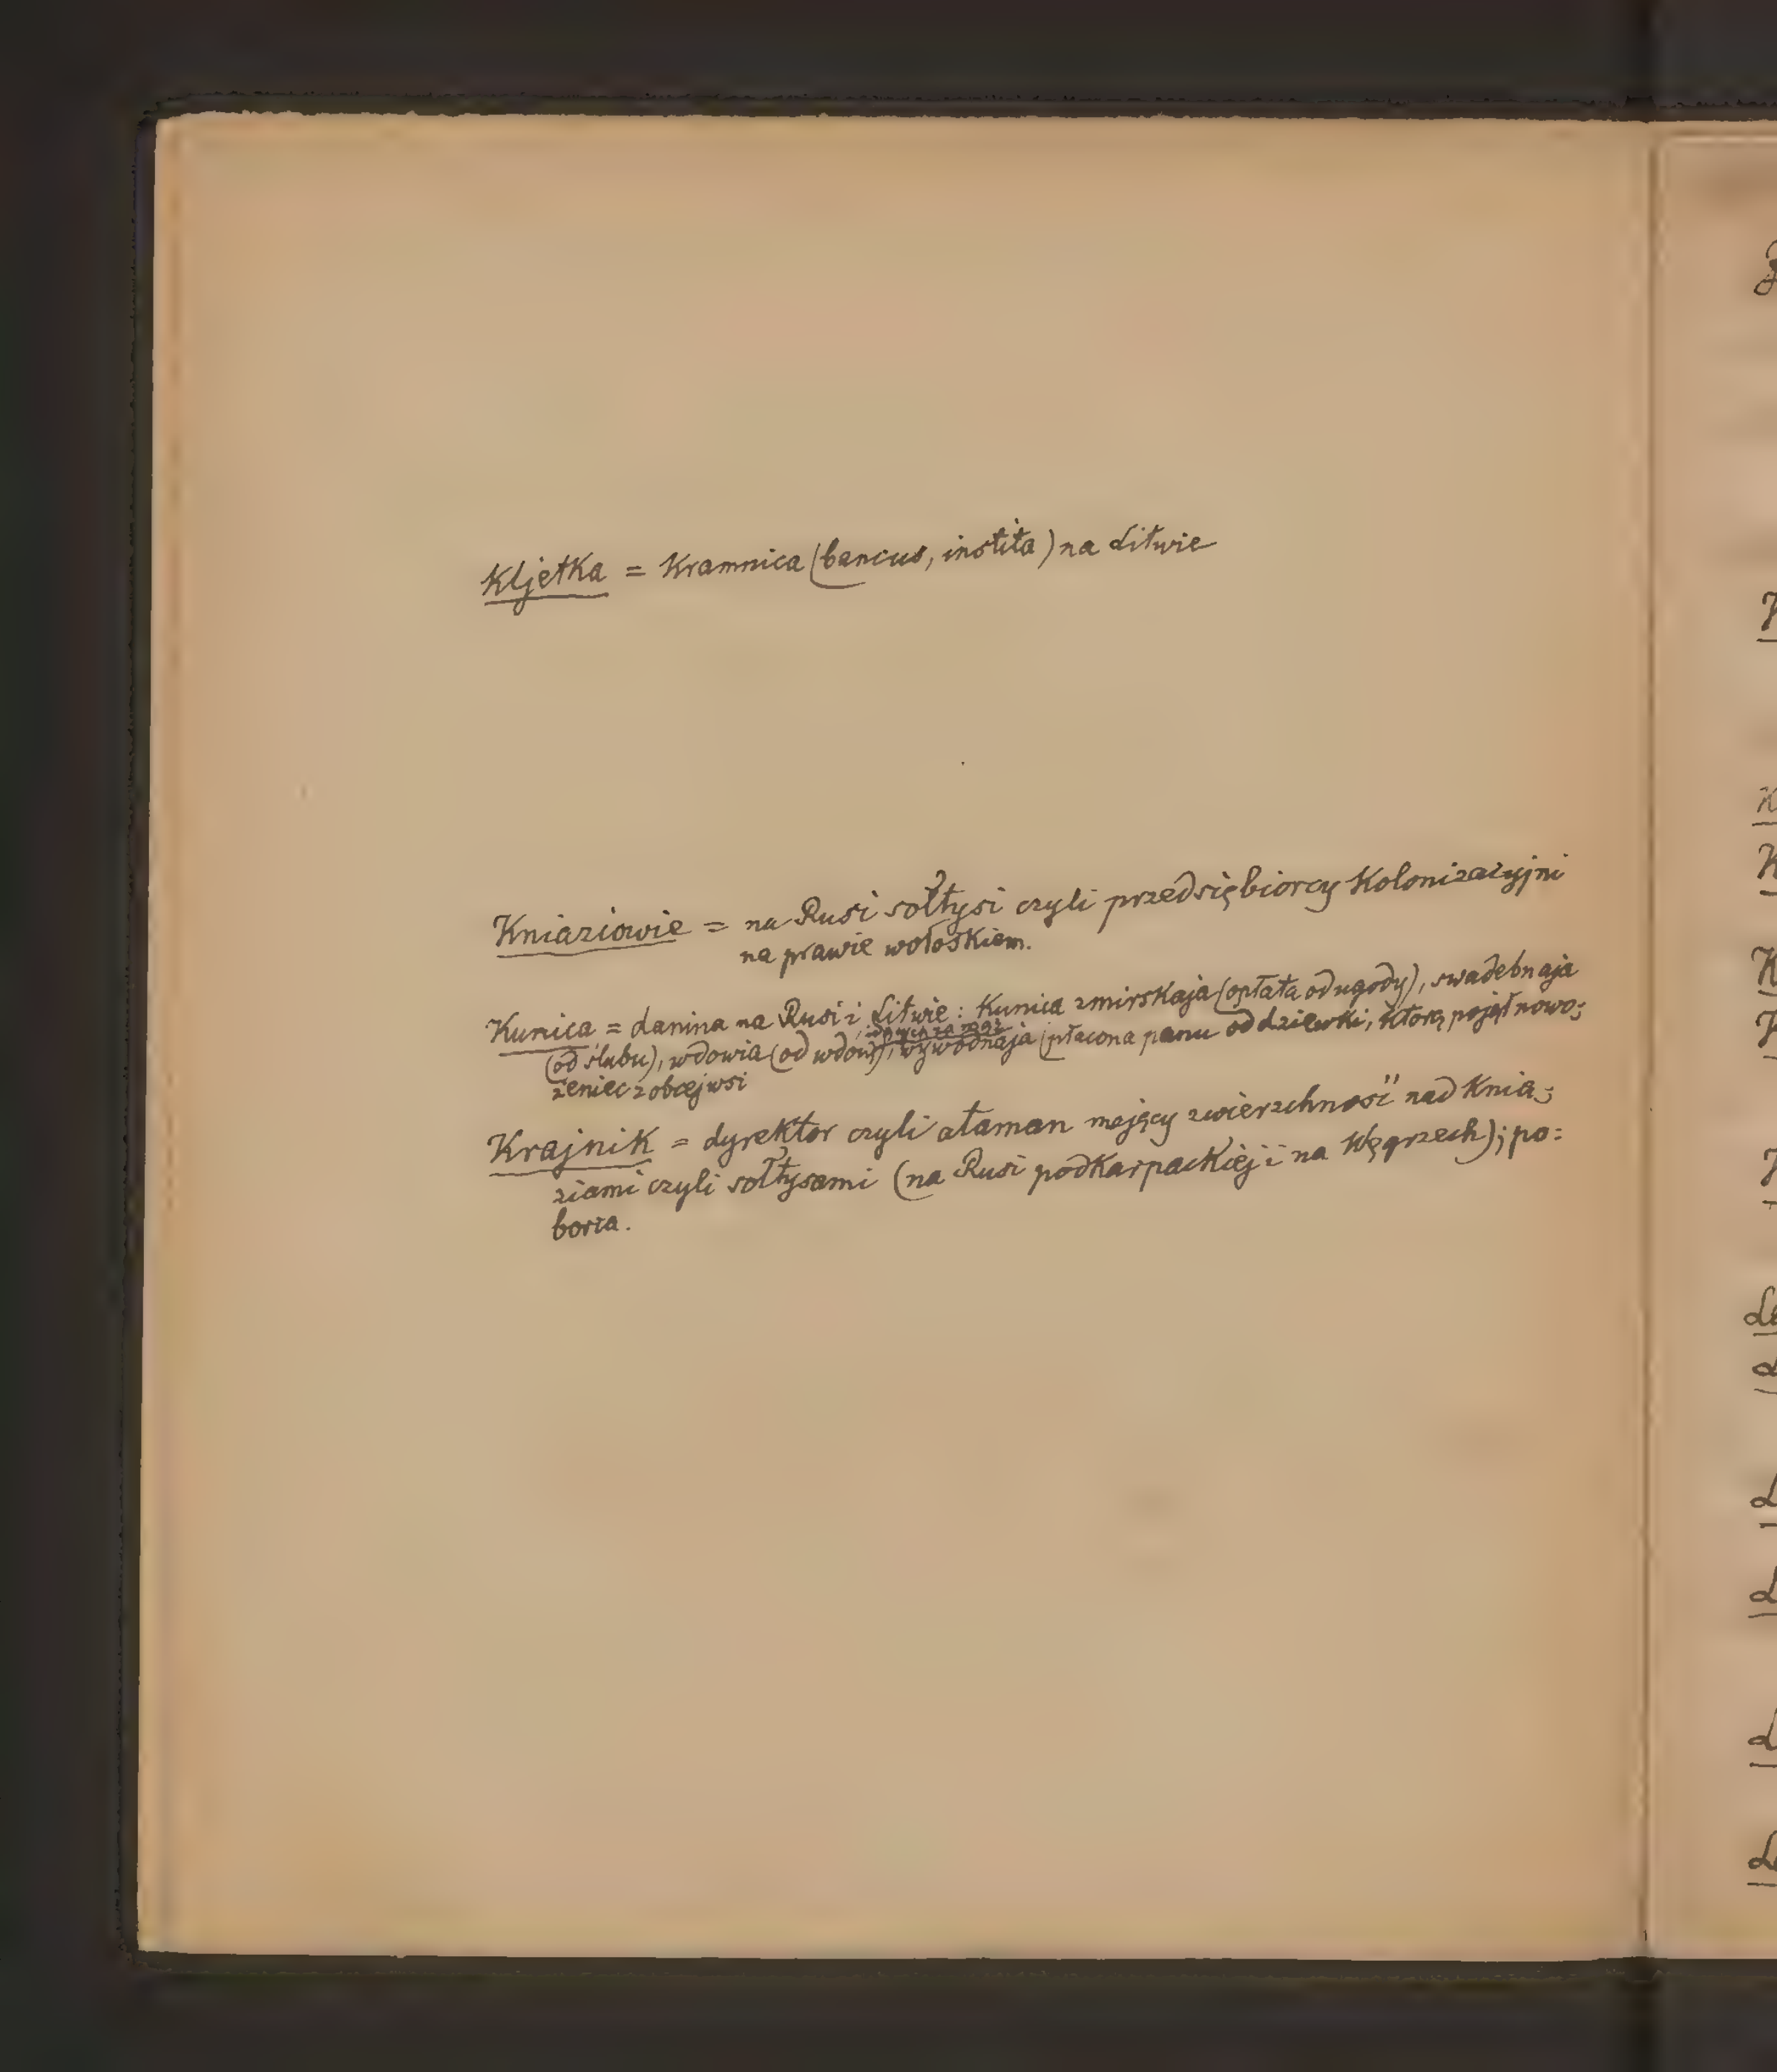 Kljetka = Kramnica (bancus, instita) na Litwie
Kniaziowie = na Rusi sołtysi czyli przedsiębiorcy kolonizacyjni
na prawie wołoskiem.
Kunica = danina na Rusi i Litwie: Kunica zmirskaja (opłata od ugody), swadebnaja
idących za mąż
(od ślubu), wdowia (od wdów), wywodnaja (płacona panu od dziewki, którą pojął nowo:
żeniec z obcej wsi
Krajnik = dyrektor czyli ataman mający zwierzchność nad Knia:
ziami czyli sołtysami (na Rusi podkarpackiej i na Węgrzech); po:
borca.